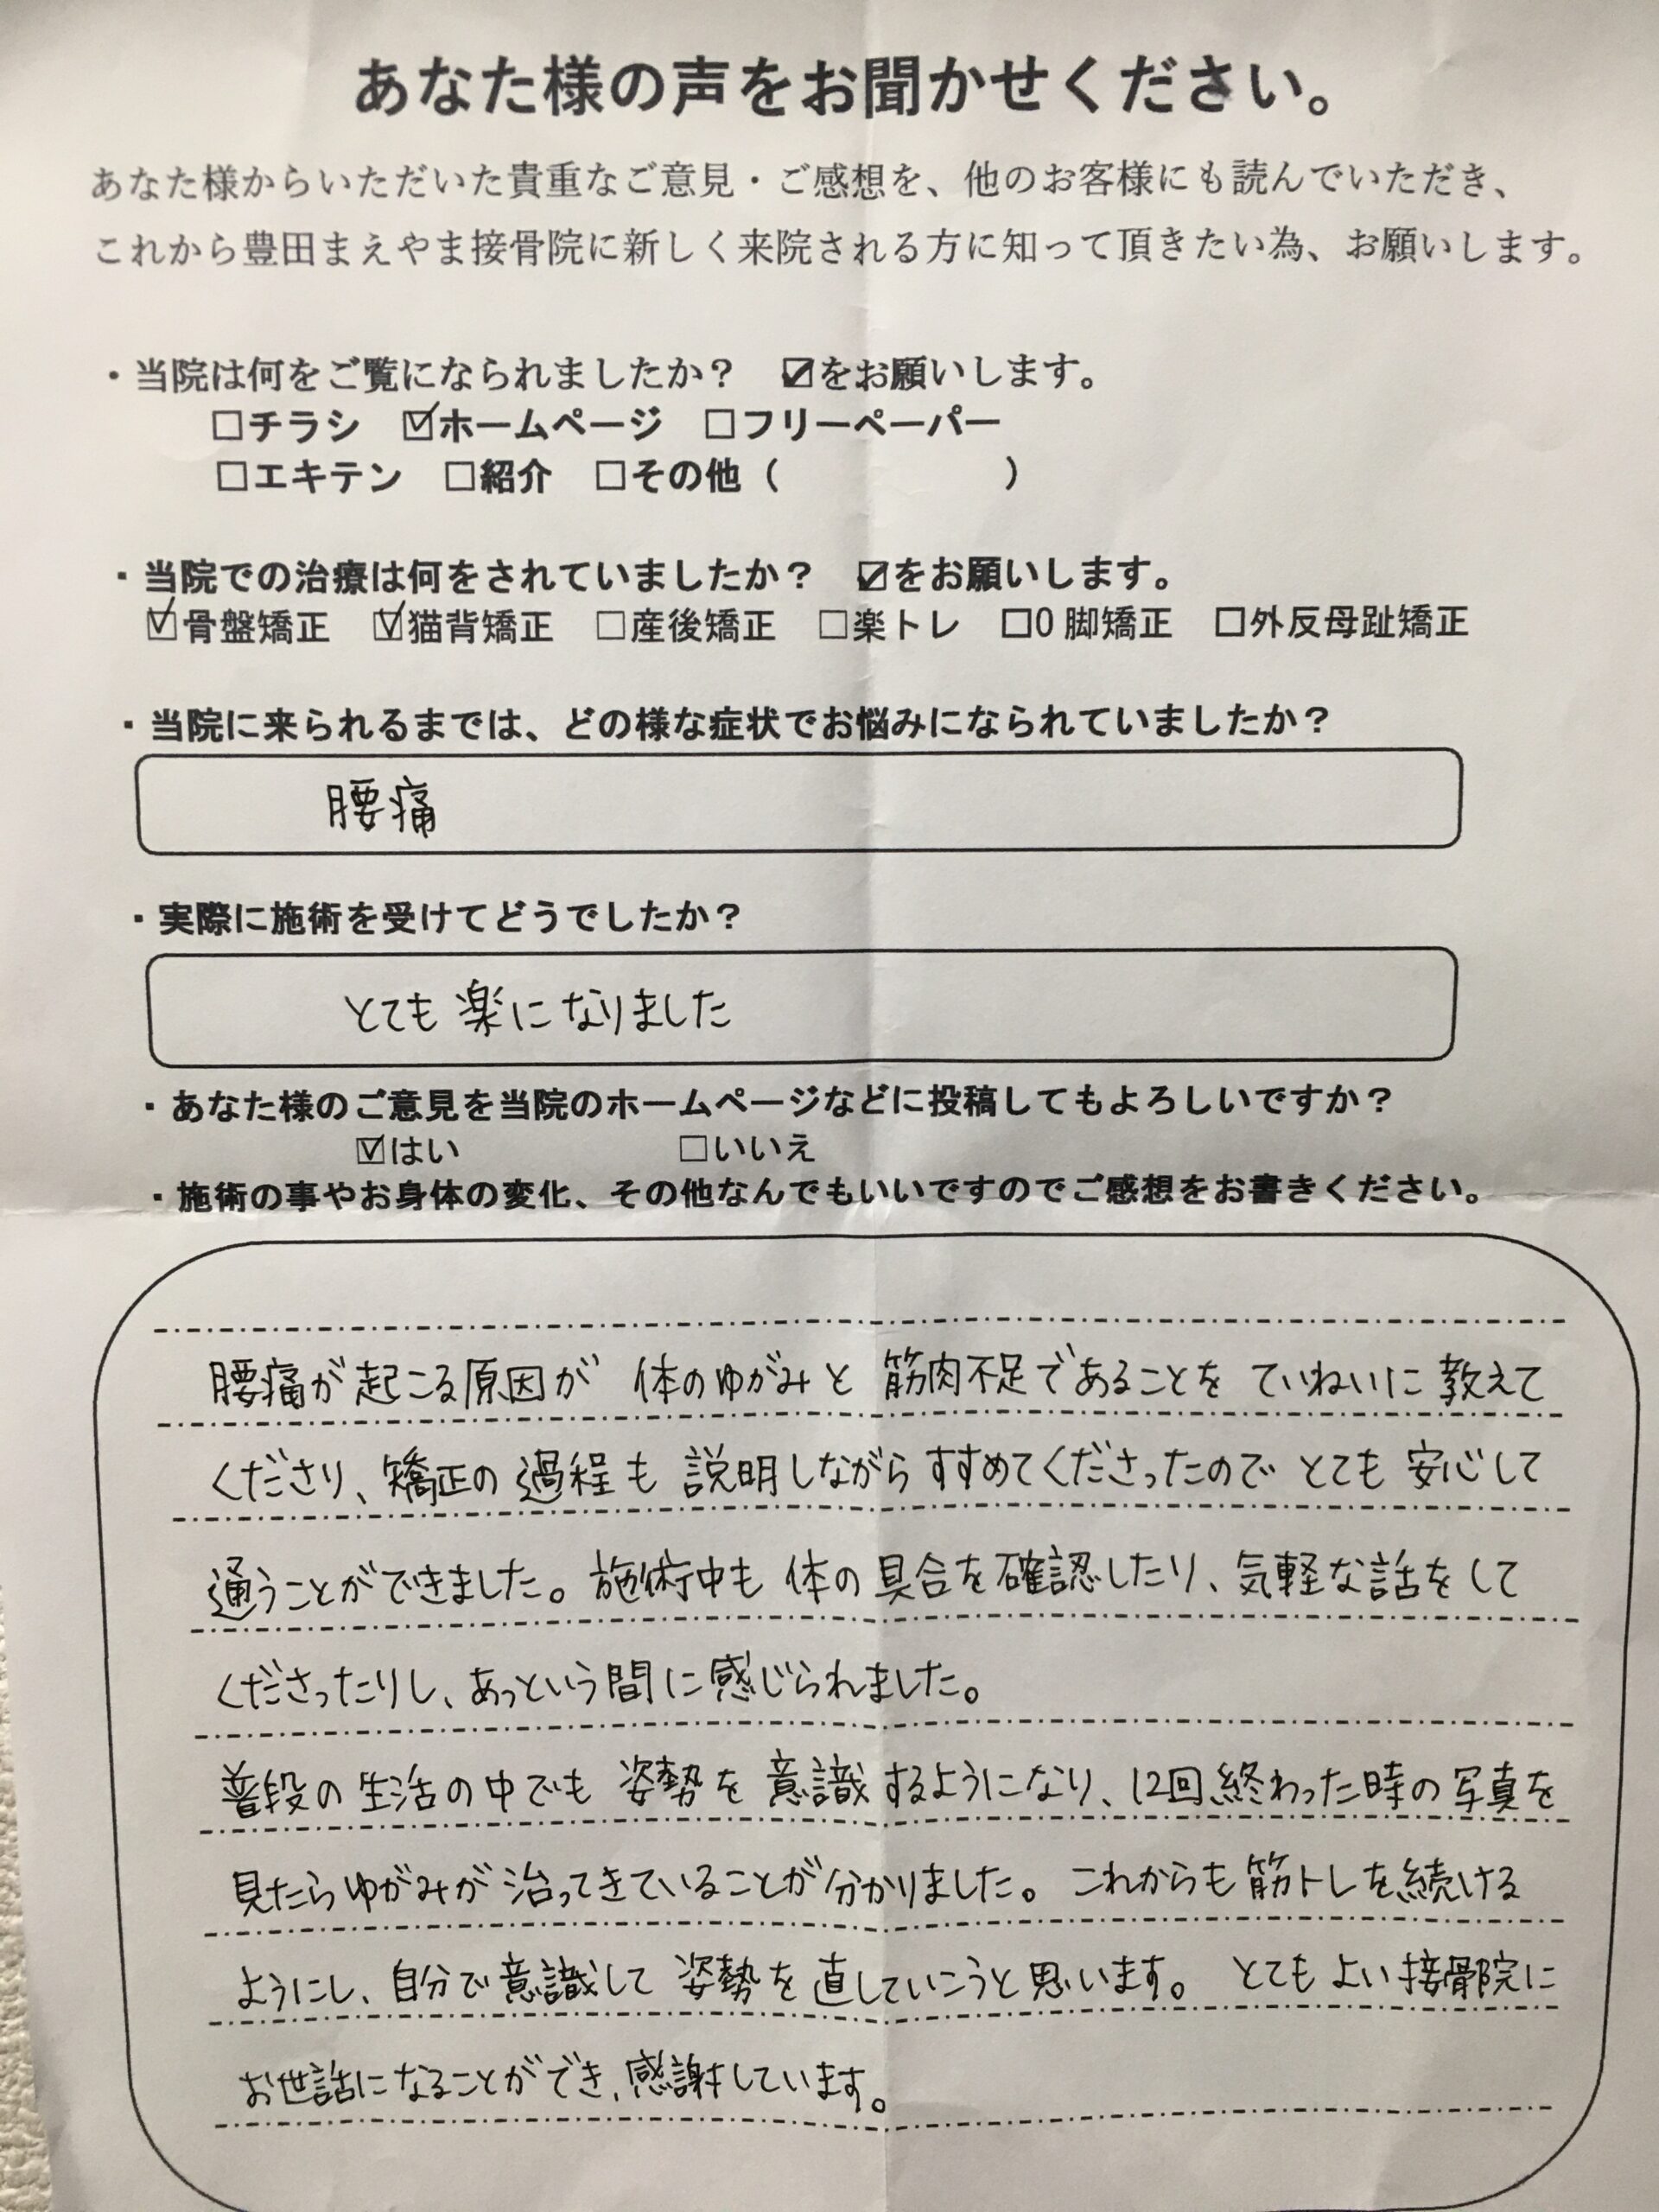 あなた様の声をお聞かせください。
あなた様からいただいた貴重なご意見・ご感想を、他のお客様にも読んでいただき、
これから豊田まえやま接骨院に新しく来院される方に知って頂きたい為、お願いします。
・当院は何をご覧になられましたか？　☑をお願いします。
□チラシ　☑ホームページ　□フリーペーパー
□エキテン　□紹介　□その他（　　　　　　）
・当院での治療は何をされていましたか？　☑をお願いします。
☑骨盤矯正　☑猫背矯正　□産後矯正　□楽トレ　□O脚矯正　□外反母趾矯正
・当院に来られるまでは、どの様な症状でお悩みになられていましたか？
腰痛
・実際に施術を受けてどうでしたか？
とても楽になりました
・あなた様のご意見を当院のホームページなどに投稿してもよろしいですか？
☑はい　□いいえ
・施術の事やお身体の変化、その他なんでもいいですのでご感想をお書きください。
腰痛が起こる原因が 体のゆがみと 筋肉不足であることを ていねいに 教えて
くださり、矯正の過程も 説明しながらすすめてくださったので とても 安心して
通うことができました。施術中も 体の具合を確認したり、気軽な話をして
くださったりし、あっという間に感じられました。
普段の生活の中でも 姿勢を 意識するようになり、12回終わった時の写真を
見たらゆがみが治ってきていることが分かりました。これからも筋トレを続ける
ようにし、自分で意識して 姿勢を直していこうと思います。とてもよい接骨院に
お世話になることができ、感謝しています。